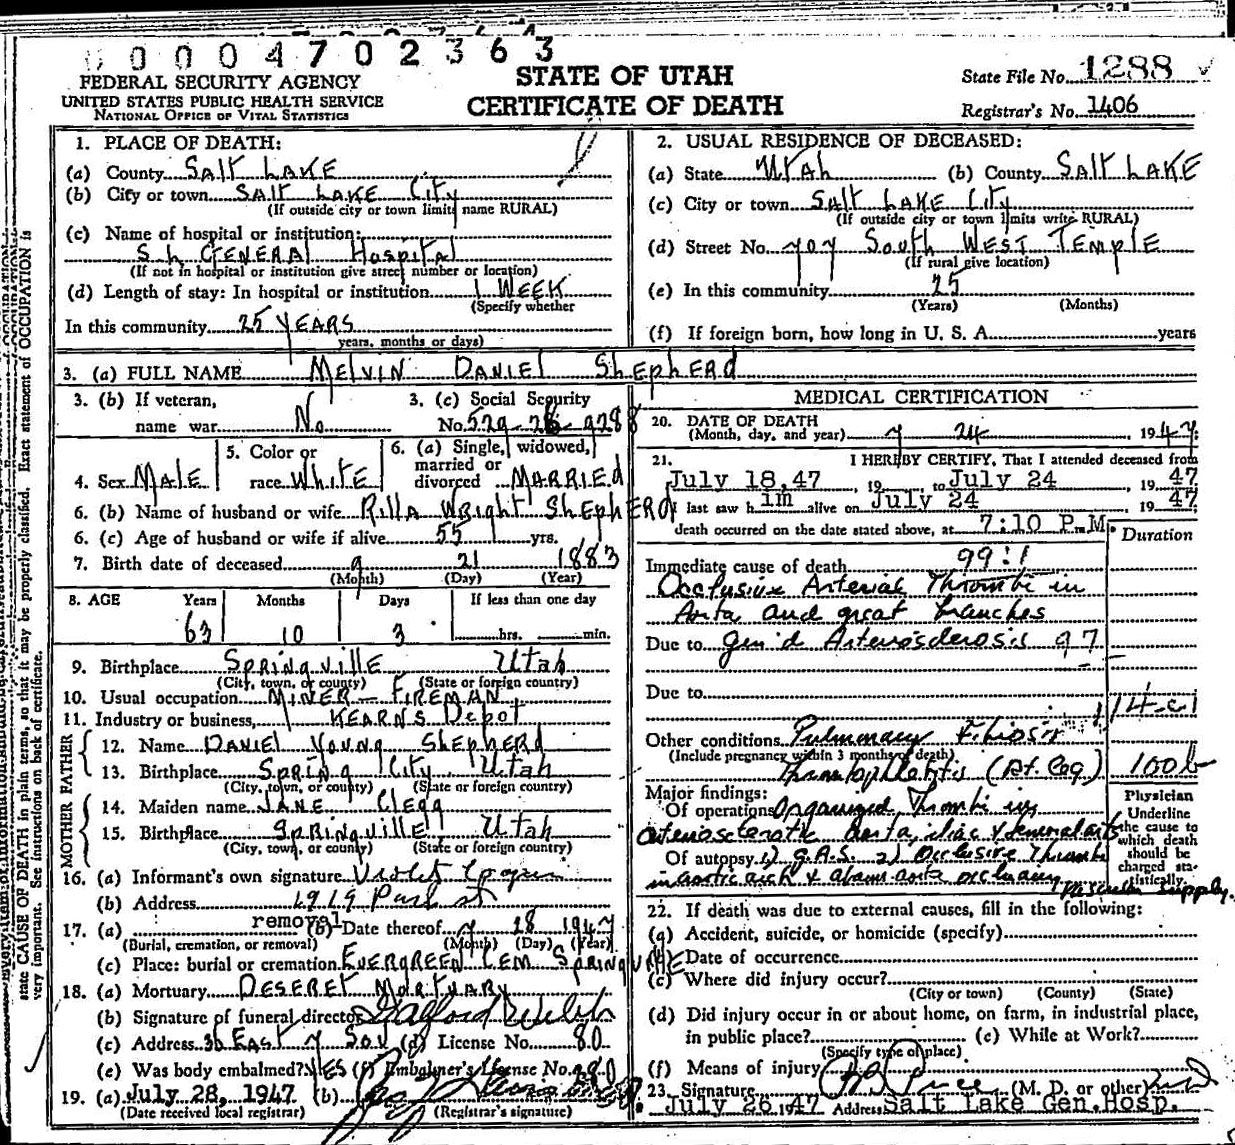 00004702363
FEDERAL SECURITY AGENCY
UNITED STATES PUBLIC HEALTH SERVICE
NATIONAL OFFICE OF VITAL STATISTICS
STATE OF UTAH
CERTIFICATE OF DEATH
State File No. 1288
Registrar's No. 1406
1. PLACE OF DEATH:
(a) County SALT LAKE
(b) City or town SALT LAKE City
(If outside city or town limits name RURAL)
(c) Name of hospital or institution:
S.L. GENERAL Hospital
(If not in hospital or institution give street number or location)
(d) Length of stay: In hospital or institution 1 WEEK
(Specify whether
In this community 25 YEARS
years, months or days)
2. USUAL RESIDENCE OF DECEASED:
(a) State Utah (b) County SALT LAKE
(c) City or town SALT LAKE City
(If outside city or town limits write RURAL)
(d) Street No. 707 South WEST TEMPLE
(If rural give location)
(e) In this community 25
(Years) (Months)
(f) If foreign born, how long in U. S. A. years
3. (a) FULL NAME MELVIN DANIEL ShEphERD
3. (b) If veteran, name war No
3. (c) Social Security No. 529-28-9288
4. Sex MALE
5. Color or race White
6. (a) Single, widowed, married or divorced MARRIED
6. (b) Name of husband or wife Rilla Wright ShEphERD
6. (c) Age of husband or wife if alive 55 yrs.
7. Birth date of deceased 9 21 1883
(Month) (Day) (Year)
8. AGE Years Months Days If less than one day
63 10 3 hrs. min.
9. Birthplace Springville Utah
(City, town, or county) (State or foreign country)
10. Usual occupation MINER - FIREMAN
11. Industry or business KEARNS Depot
FATHER
12. Name DANIEL Young ShEphERD
13. Birthplace Spring City, Utah
(City, town, or county) (State or foreign country)
MOTHER
14. Maiden name JANE Clegg
15. Birthplace Springville, Utah
(City, town, or county) (State or foreign country)
16. (a) Informant's own signature Violet
(b) Address 1919 Park St
17. (a) removal (b) Date thereof 7 28 1947
(Burial, cremation, or removal) (Month) (Day) (Year)
(c) Place: burial or cremation EVERGREEN CEM SpringVILLE
18. (a) Mortuary DESERET MORTUARY
(b) Signature of funeral director
(c) Address 36 EAST 7 Sou (d) License No. 80
(e) Was body embalmed? YES (f) Embalmer's License No.
19. (a) July 28, 1947 (b)
(Date received local registrar) (Registrar's signature)
MEDICAL CERTIFICATION
20. DATE OF DEATH
(Month, day, and year) 7 24 1947
21. I HEREBY CERTIFY, That I attended deceased from
July 18,47, 19 to July 24, 1947
I last saw him alive on July 24, 1947
death occurred on the date stated above, at 7:10 P.M.
Duration
Immediate cause of death 99:1
Occlusive Arterial Thrombi in
Aorta and great branches
Due to Gen'd Arteriosclerosis 97
Due to
Other conditions Pulmonary Fibrosis
(Include pregnancy within 3 months of death)
100b
Major findings:
Of operations Organized Thrombi in
arteriosclerotic aorta, iliac & femoral arts
Of autopsy 1) G.A.S. 2) Occlusive Thrombi
in aortic arch &
Vascular supply.
Physician
Underline the cause to which death should be charged statistically.
22. If death was due to external causes, fill in the following:
(a) Accident, suicide, or homicide (specify)
(b) Date of occurrence
(c) Where did injury occur?
(City or town) (County) (State)
(d) Did injury occur in or about home, on farm, in industrial place,
in public place? (e) While at Work?
(Specify type of place)
(f) Means of injury
23. Signature (M. D. or other) MD
July 26, 1947 Address Salt Lake Gen.Hosp.
state CAUSE OF DEATH in plain terms, so that it may be properly classified. Exact statement of OCCUPATION is
very important. See instructions on back of certificate.